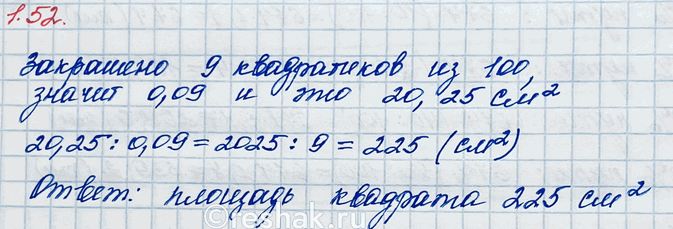 1.52.
Закрашено 9 квадратиков из 100,
значит 0,09 и это 20,25 см²
20,25 : 0,09 = 2025 : 9 = 225 (см²)
Ответ: площадь квадрата 225 см²
©reshak.ru